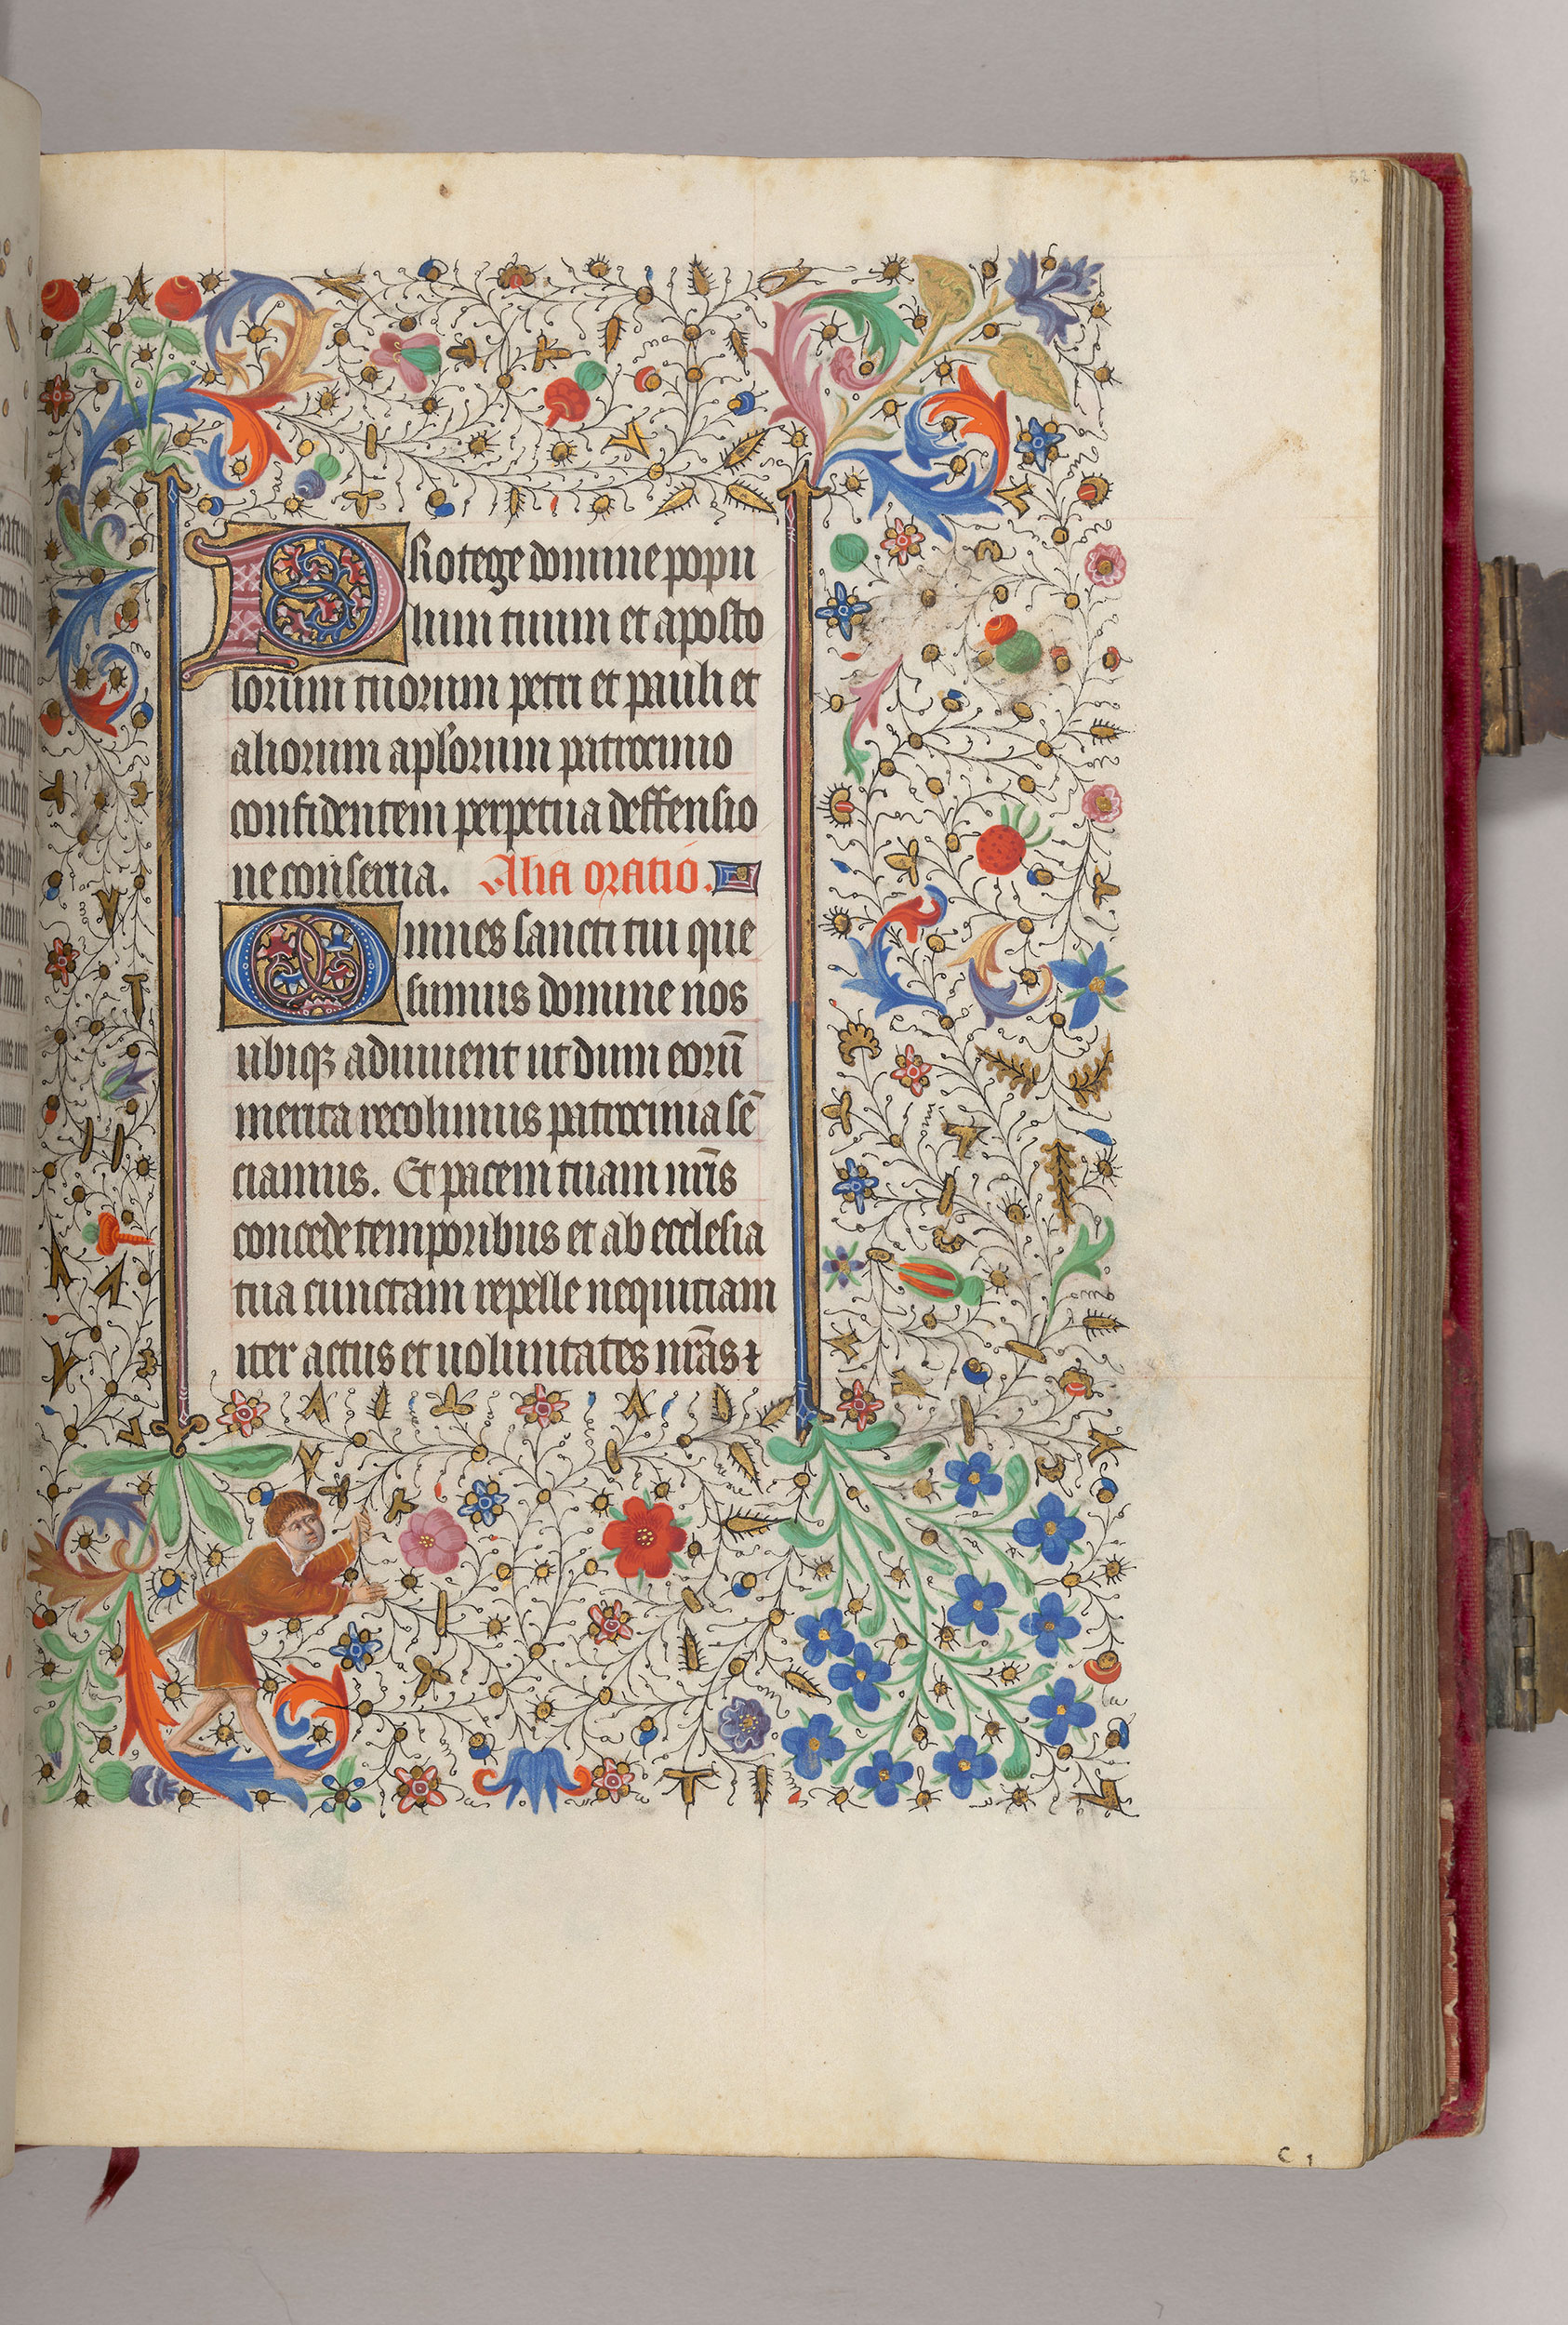 52
PRotege domine popu
lum tuum et aposto
lorum tuorum petri et pauli et
aliorum aplorum patrocinio
confidentem perpetua deffensio
ne conserua. Alia oratio.
Omnes sancti tui que
sumus domine nos
ubiqȝ adiuuent ut dum eorū
merita recolimus patrocinia sē
ciamus. Et pacem tuam nrīs
concede temporibus et ab ecclesia
tua cunctam repelle nequitiam
iter actus et uoluntates nrās ⁊
c 1